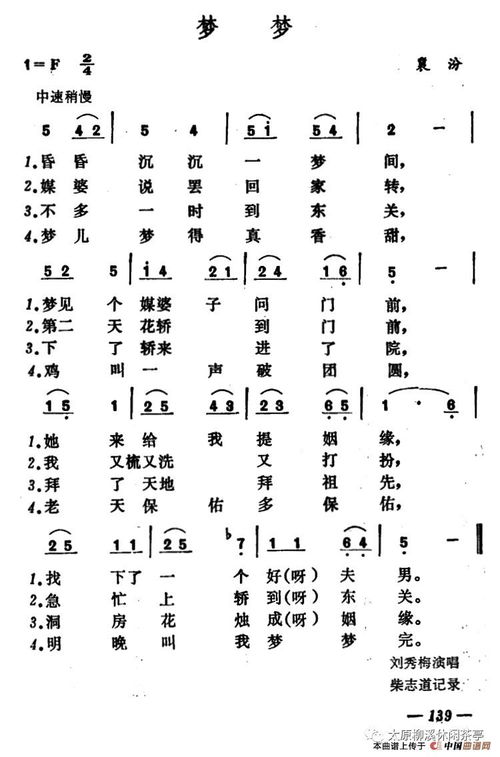 梦 梦
1=F 2/4
襄 汾
中速稍慢
5 42 | 5 4 | 5i 54 | 2 — |
1.昏昏 沉沉 一梦 间,
2.媒婆 说罢 回家 转,
3.不多 一时到 东 关,
4.梦儿 梦得 真香 甜,
52 5 | i4 21 | 24 16 | 5 — |
1.梦见个 媒婆子 问门 前,
2.第二天 花轿 到门 前,
3.下了 轿来 进了 院,
4.鸡叫 一声 破团 圆,
15 1 | 25 43 | 23 65 | 1 · 6 |
1.她来 给我 提姻 缘,
2.我又 梳又洗 又打 扮,
3.拜了 天地 拜祖 先,
4.老天 保佑 多保 佑,
25 11 | 25 ♭7 | 11 64 | 5 — ‖
1.找下了 一个 好(呀)夫 男。
2.急忙 上轿 到(呀)东 关。
3.洞房 花烛 成(呀)姻 缘。
4.明晚 叫我 梦梦 完。
刘秀梅演唱
柴志道记录
— 139 —
太原柳溪休闲茶亭
本曲谱上传于 中国曲谱网